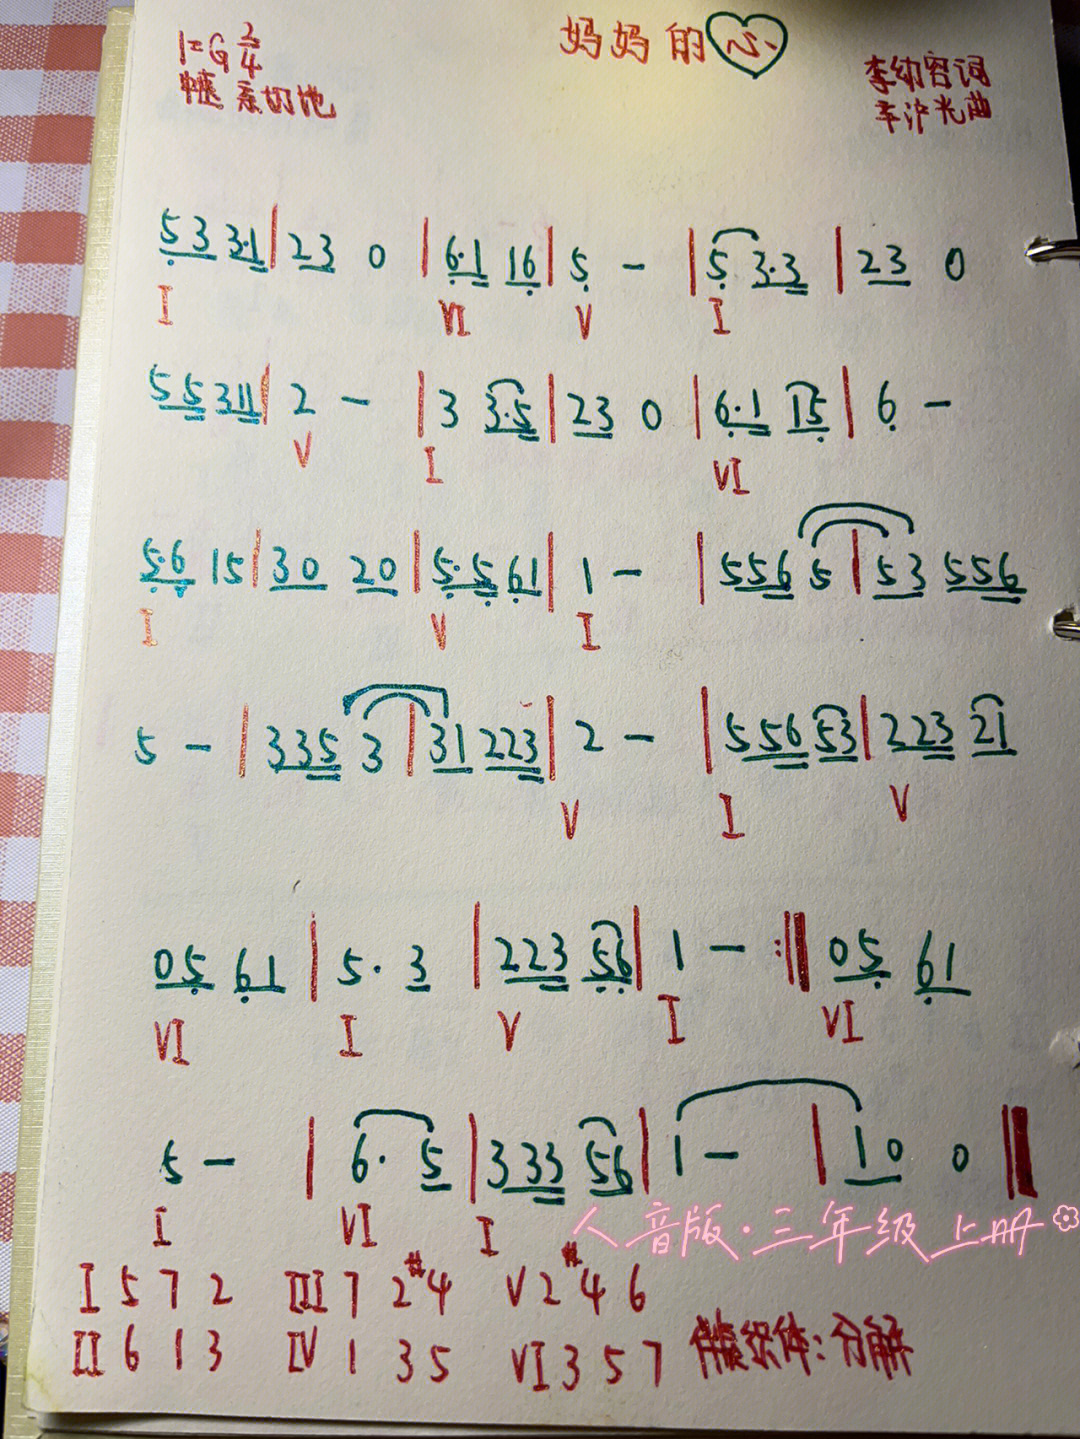 妈妈的心
1=G 2/4
中速 亲切地
李幼容词
车沪光曲
5 3 3·1 | 2 3 0 | 6·1 1 6 | 5 - | 5 3·3 | 2 3 0
I VI V I
5 5 5 3 1 1 | 2 - | 3 3·5 | 2 3 0 | 6·1 1 5 | 6 -
V I VI
5·6 1 5 | 3 0 2 0 | 5·5 6 1 | 1 - | 5 5 6 5 | 5 3 5 5 6
I V I
5 - | 3 3 5 3 | 3 1 2 2 3 | 2 - | 5 5 6 5 3 | 2 2 3 2 1
V I V
0 5 6 1 | 5· 3 | 2 2 3 5 6 | 1 - :‖ 0 5 6 1
VI I V I VI
5 - | 6· 5 | 3 3 3 5 6 | 1 - | 1 0 0 ‖
I VI I
人音版·三年级上册
I 5 7 2 III 7 2 #4 V 2 #4 6
II 6 1 3 IV 1 3 5 VI 3 5 7 伴奏织体：分解